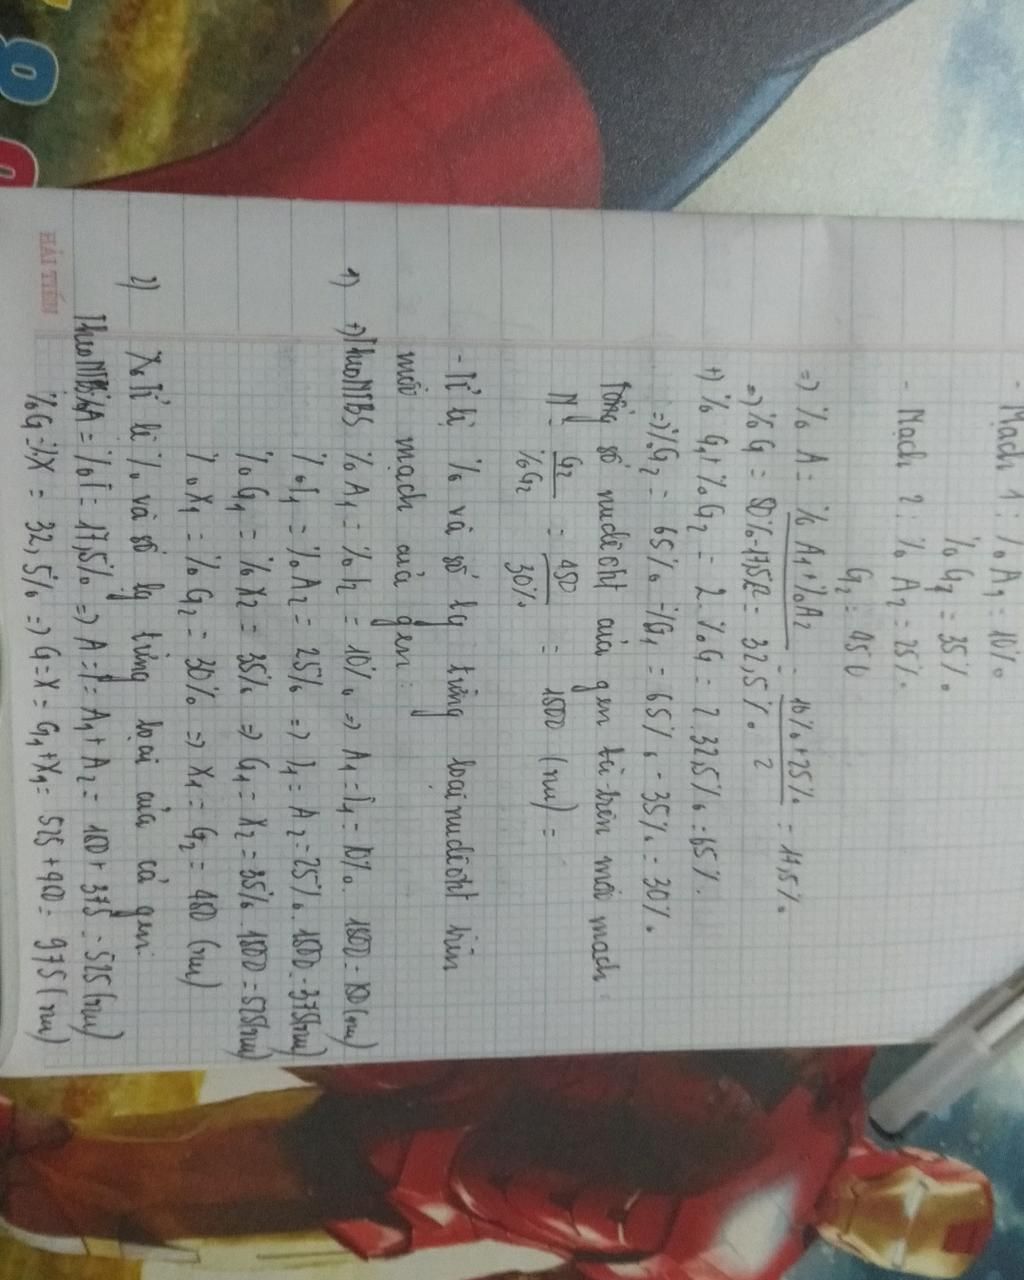 - Mạch 1 : % A1 = 10%
% G1 = 35%
- Mạch 2 : % A2 = 25%.
G2 = 450
=) % A = % A1+%A2 / 2 = 10%+25% / 2 = 17,5%.
=) % G = 50%-17,5% = 32,5%.
+) % G1+%G2 = 2.%G = 2.32,5% = 65%.
=) %G2 = 65% - %G1 = 65% - 35% = 30%.
Tổng số nuclêôtit của gen trên mỗi mạch :
N = G2 / %G2 = 450 / 30% = 1500 (nu) =
- Tỉ lệ % và số lg từng loại nuclêôtit trên
mỗi mạch của gen :
1) +) Theo NTBS % A1 = % T2 = 10% => A1 = T2 = 10%. 1500 = 150 (nu)
% T1 = % A2 = 25% => T1 = A2 = 25%. 1500 = 375(nu)
% G1 = % X2 = 35% => G1 = X2 = 35%. 1500 = 525(nu)
% X1 = % G2 = 30% => X1 = G2 = 450 (nu)
2) Tỉ lệ % và số lg từng loại của cả gen:
Theo NTBS: %A = %T = 17,5% => A = T = A1 + A2 = 150 + 375 = 525 (nu)
%G = %X = 32,5% => G = X = G1 + X1 = 525 + 450 = 975 (nu)
HẢI TIẾN